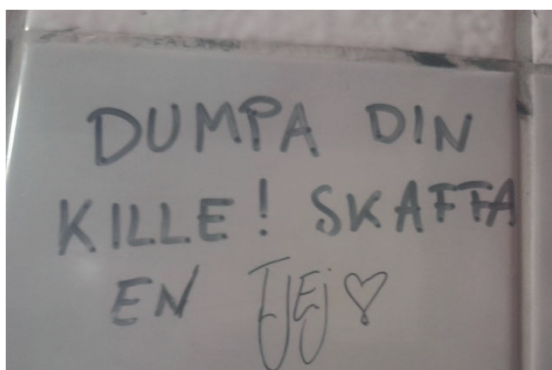 DUMPA DIN
KILLE! SKAFFA
EN TJEJ ♡